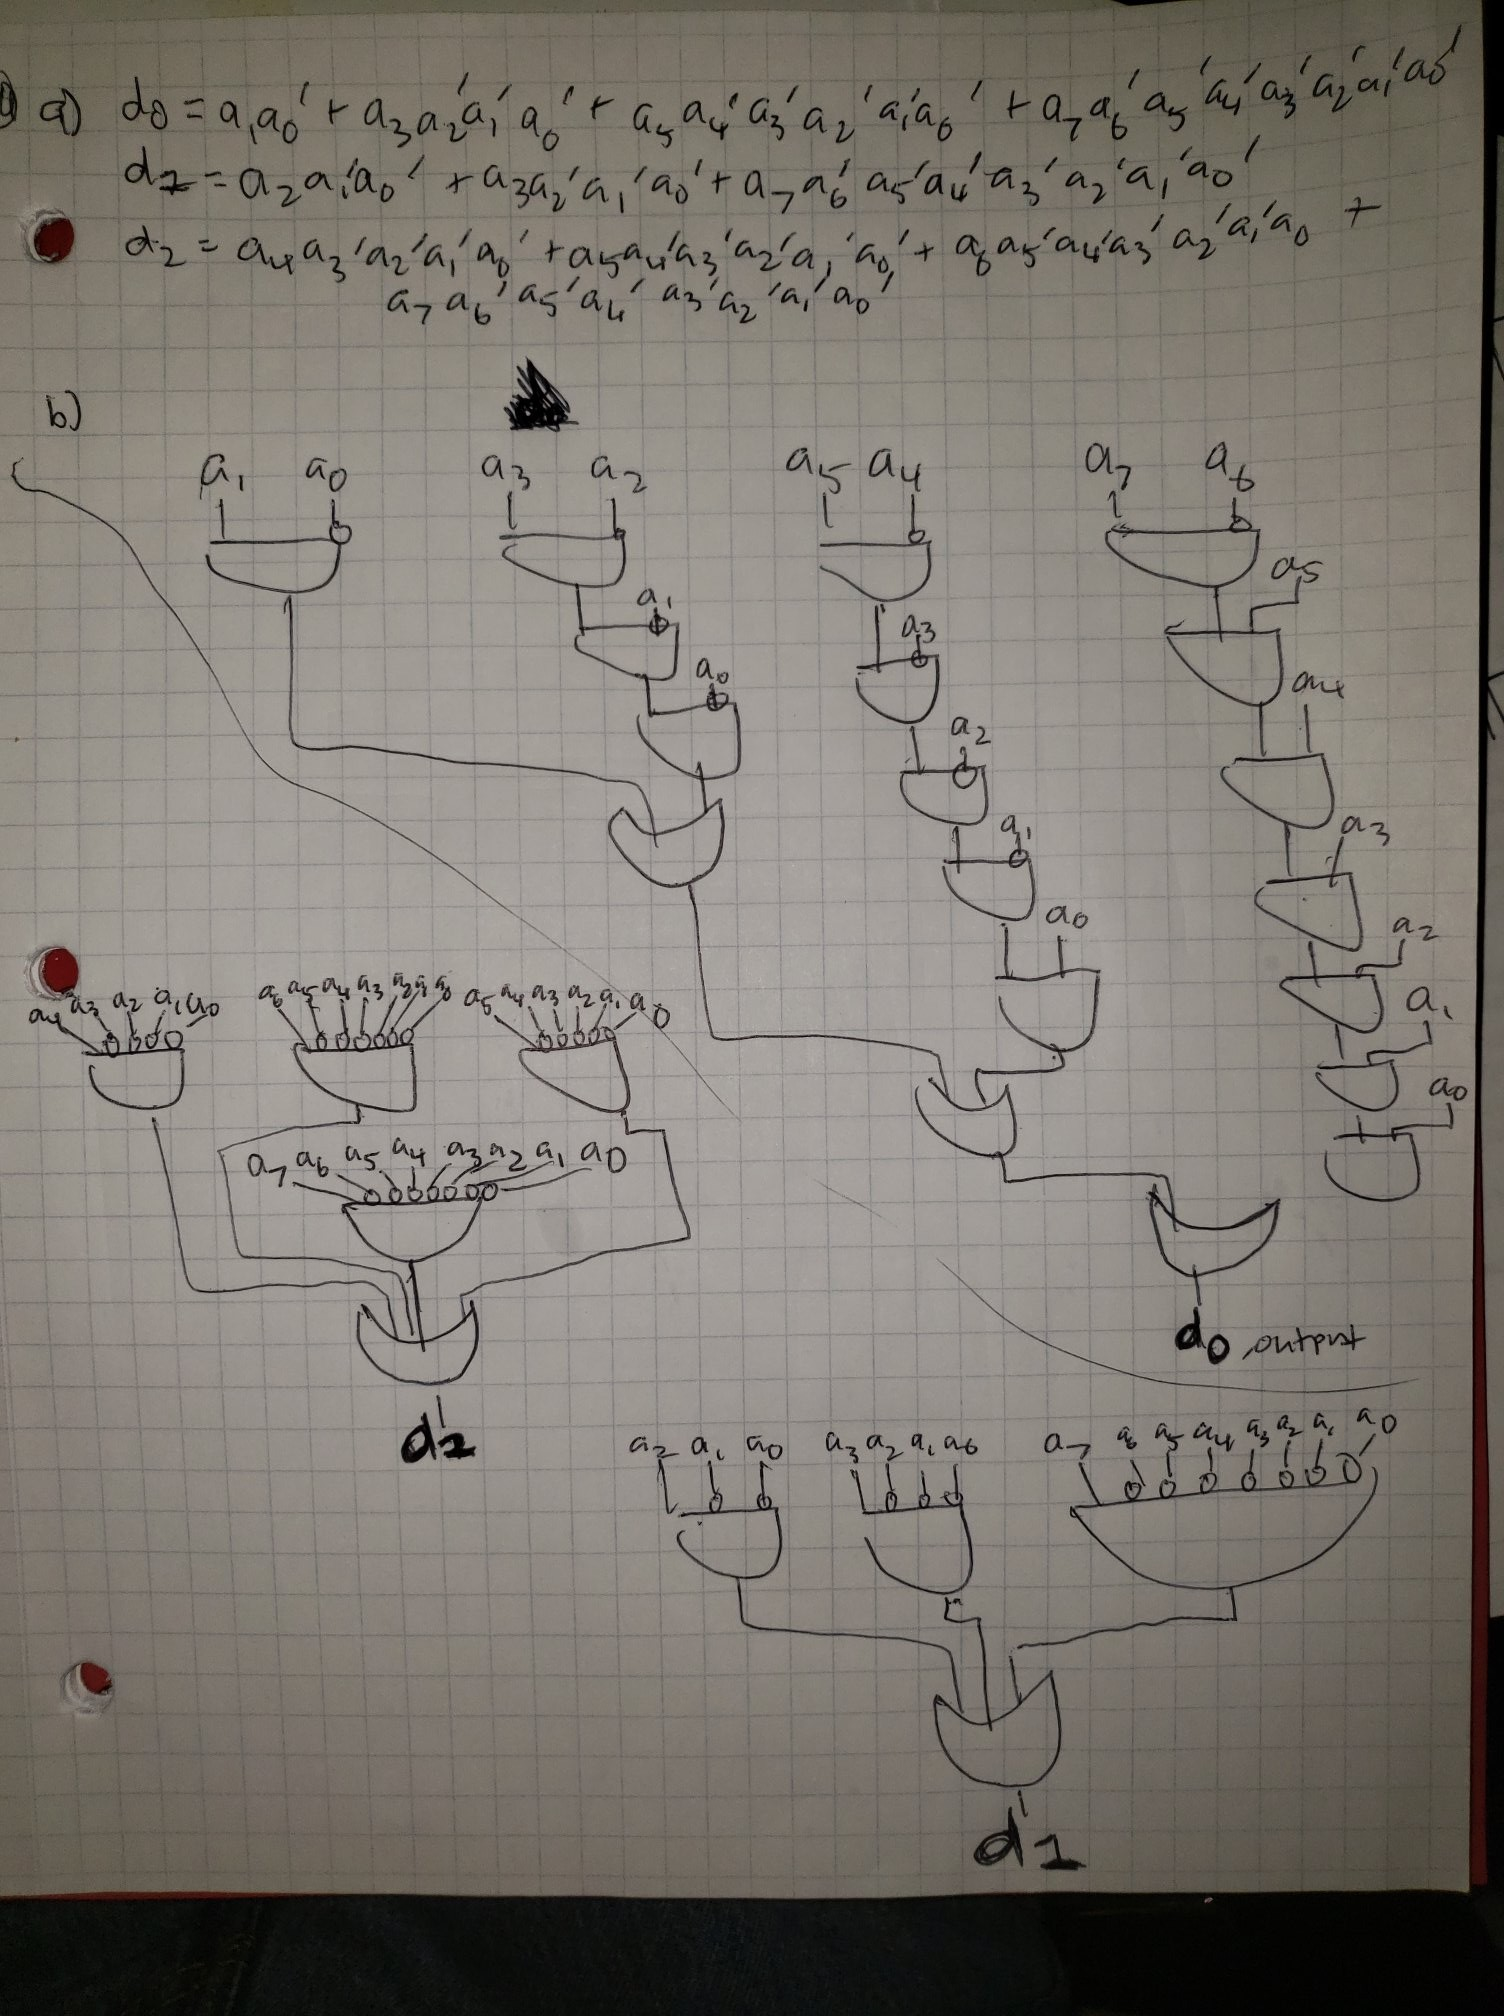 a) d0 = a1a0' + a3a2'a1'a0' + a5a4'a3'a2'a1'a0' + a7a6'a5'a4'a3'a2'a1'a0'
d1 = a2a1'a0' + a3a2'a1'a0' + a7a6'a5'a4'a3'a2'a1'a0'
d2 = a4a3'a2'a1'a0' + a5a4'a3'a2'a1'a0' + a6a5'a4'a3'a2'a1'a0 +
a7a6'a5'a4'a3'a2'a1'a0'
b)
a1 a0 a3 a2 a5 a4 a7 a6
a5
a1
a3
a0
a4
a2
a1
a3
a0
a2
a4 a3 a2 a1 a0 a6 a5 a4 a3 a2 a1 a0 a5 a4 a3 a2 a1 a0
a1
a0
a7 a6 a5 a4 a3 a2 a1 a0
d0 output
d2
a2 a1 a0 a3 a2 a1 a0 a7 a6 a5 a4 a3 a2 a1 a0
d1